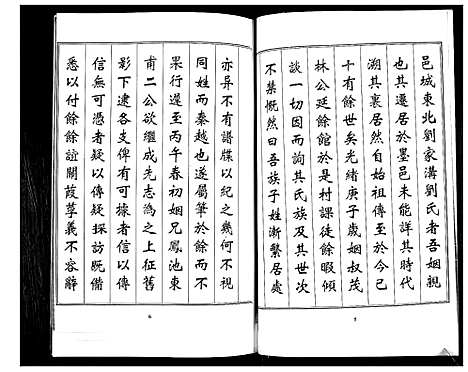 邑城東北劉家溝劉氏者吾姻親
也其遷居於墨邑未能詳其時代
溯其裏居然自始遷以至於今已
十有餘世矣光緒庚子歲姻叔茂
林公廷餘館於是村課徒餘暇傾
談一切因而詢其氏族及其世次
不禁慨然曰吾族子姓漸繁居處
亦异不有譜牒以紀之幾何不視
同姓而秦越也遂屬筆於餘而不
果行遲至丙午春初姻兄鳳池東
甫二公欲繼成先志為之上征舊
影下逮各支俾有可據者信以傳
信無可憑者疑以傳疑採訪既備
悉以付餘餘誼關葭莩義不容辭